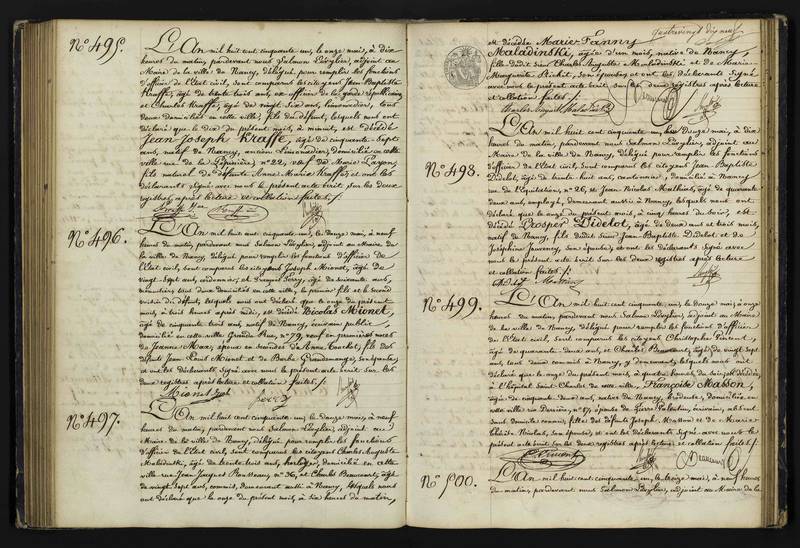 N.° 495.
L'An mil huit cent cinquante-un, le onze mai, à dix
heures du matin, pardevant nous Salmon Lévylier, adjoint au
Maire de la ville de Nancy, délégué pour remplir les fonctions
d'officier de l'Etat civil, sont comparus les citoyens Jean-Baptiste
Kraffe, âgé de trente trois ans, ex officier de la garde républicaine
et Charles Kraffe, âgé de vingt Six ans, limonadier, tous
deux domiciliés en cette ville, fils du défunt, lesquels nous ont
déclaré que le dix du présent mois, à minuit, est décédé
Jean-Joseph Kraffe, âgé de cinquante-Sept
ans, natif de Nancy, ancien limonadier, domicilié en cette
ville rue de la Pépinière, n.° 22, veuf de Marie
fils naturel de défunte Anne-Marie Kraffe; et ont les
déclarants signé avec nous le présent acte écrit sur les deux
registres, après lecture et collation faites /.
N.° 496.
L'An mil huit cent cinquante-un, le douze mai, à neuf
heures du matin, pardevant nous Salmon Lévylier, adjoint au Maire de
la ville de Nancy, délégué pour remplir les fonctions d'officier de
l'Etat civil, sont comparus les citoyens Joseph Mionet, âgé de
vingt-Sept ans, et âgé de soixante ans,
tous deux domiciliés en cette ville, le premier fils et le second
voisin du défunt, lesquels nous ont déclaré que le onze du présent
mois, à trois heures après midi, est décédé Nicolas Mionet,
âgé de cinquante trois ans, natif de Nancy, écrivain public,
domicilié en cette ville Grande Rue, n.° 79, veuf en premières noces
de Jeanne Marc, époux en secondes d'Anne fils des
défunts Jean Paul Mionet et de Barbe Grandemange, Son épouse;
et ont les déclarants Signé avec nous le présent acte écrit sur les
deux registres après lecture et collation faites /.
N.° 497.
L'An mil huit cent cinquante-un, le douze mai, à neuf
heures du matin, pardevant nous Salmon Lévylier, adjoint au
Maire de la ville de Nancy, délégué pour remplir les fonctions
d'officier de l'Etat civil, sont comparus les citoyens Charles Auguste
Maladinski, âgé de trente trois ans, horloger, domicilié en cette
ville rue Jean Jacques Rousseau, n.° 36, et Charles Beaucourt, âgé
de vingt Sept ans, commis, demeurant aussi à Nancy, lesquels nous
ont déclaré que le onze du présent mois, à six heures du matin,
quatrevingt dix neuf
est décédée Marie Fanny
Maladinski, âgée d'un mois, native de Nancy,
fille dudit Sieur Charles Auguste Maladinski et de Marie-
Marguerite Richet, Son épouse; et ont les déclarants Signé
avec nous le présent acte écrit sur les deux registres après lecture
et collation faites /.
N.° 498.
L'An mil huit cent cinquante-un, le douze mai, à dix
heures du matin, pardevant nous Salmon Lévylier, adjoint au
Maire de la ville de Nancy, délégué pour remplir les fonctions
d'officier de l'Etat civil, sont comparus les citoyens Jean-Baptiste
Didelot, âgé de trente huit ans, cantonnier, domicilié à Nancy
rue de l'Equitation, n.° 26, et Jean Nicolas Mathieu, âgé de quarante
deux ans, employé, demeurant aussi à Nancy, lesquels nous ont
déclaré que le onze du présent mois, à cinq heures du soir, est
décédé Prosper Didelot, âgé de deux ans et trois mois,
natif de Nancy, fils dudit Sieur Jean-Baptiste Didelot et de
Joséphine Son épouse; et ont les déclarants Signé avec
nous le présent acte écrit sur les deux registres après lecture
et collation faites /.
N.° 499.
L'An mil huit cent cinquante-un, le douze mai, à onze
heures du matin, pardevant nous Salmon Lévylier, adjoint au Maire
de la ville de Nancy, délégué pour remplir les fonctions d'officier
de l'Etat civil, sont comparus les citoyens Christophe
âgé de quarante-deux ans, et Charles Beaucourt, âgé de vingt-Sept
ans, tous deux commis à Nancy, y demeurant, lesquels nous ont
déclaré que le onze du présent mois, à quatre heures du soir, est décédée
à l'hôpital Saint-Charles de cette ville, Françoise Masson,
âgée de cinquante deux ans, native de Nancy, brodeuse, domiciliée en
cette ville rue Derrière, n.° 17, épouse de Pierre écrivain, absent
sans domicile connu, fille des défunts Joseph Masson et de Marie-
Thérèse Nicolas, Son épouse; et ont les déclarants Signé avec nous le
présent acte écrit sur les deux registres après lecture et collation faites /.
N.° 500.
L'An mil huit cent cinquante-un, le treize mai, à neuf heures
du matin, pardevant nous Salmon Lévylier, adjoint au Maire de la